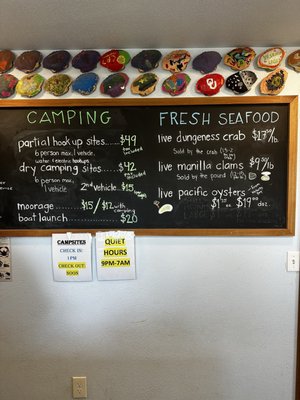 CAMPING
partial hookup sites......$49
6 person max, 1 vehicle,
water & electric hookups
dry camping sites......$42
6 person max,
1 vehicle
2nd vehicle..$15
moorage............$15/$12 with camping
boat launch............$20
FRESH SEAFOOD
live dungeness crab $17/lb
Sold by the crab
live manilla clams $9/lb
Sold by the pound
live pacific oysters
$19 doz.
CAMPSITES
CHECK IN:
1 PM
CHECK OUT:
NOON
QUIET
HOURS
9PM-7AM